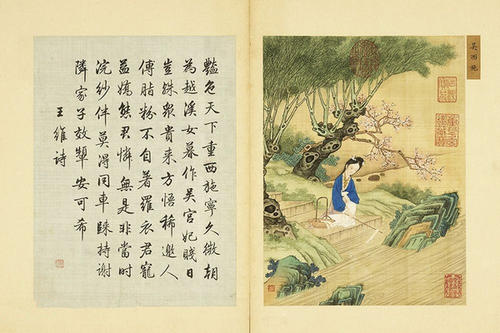 豔色天下重西施寧久微朝
為越溪女暮作吳宮妃賤日
豈殊衆貴來方悟稀邀人
傅脂粉不自著羅衣君寵
益嬌態君憐無是非當時
浣紗伴莫得同車歸持謝
隣家子效顰安可希
王維詩
吳西施